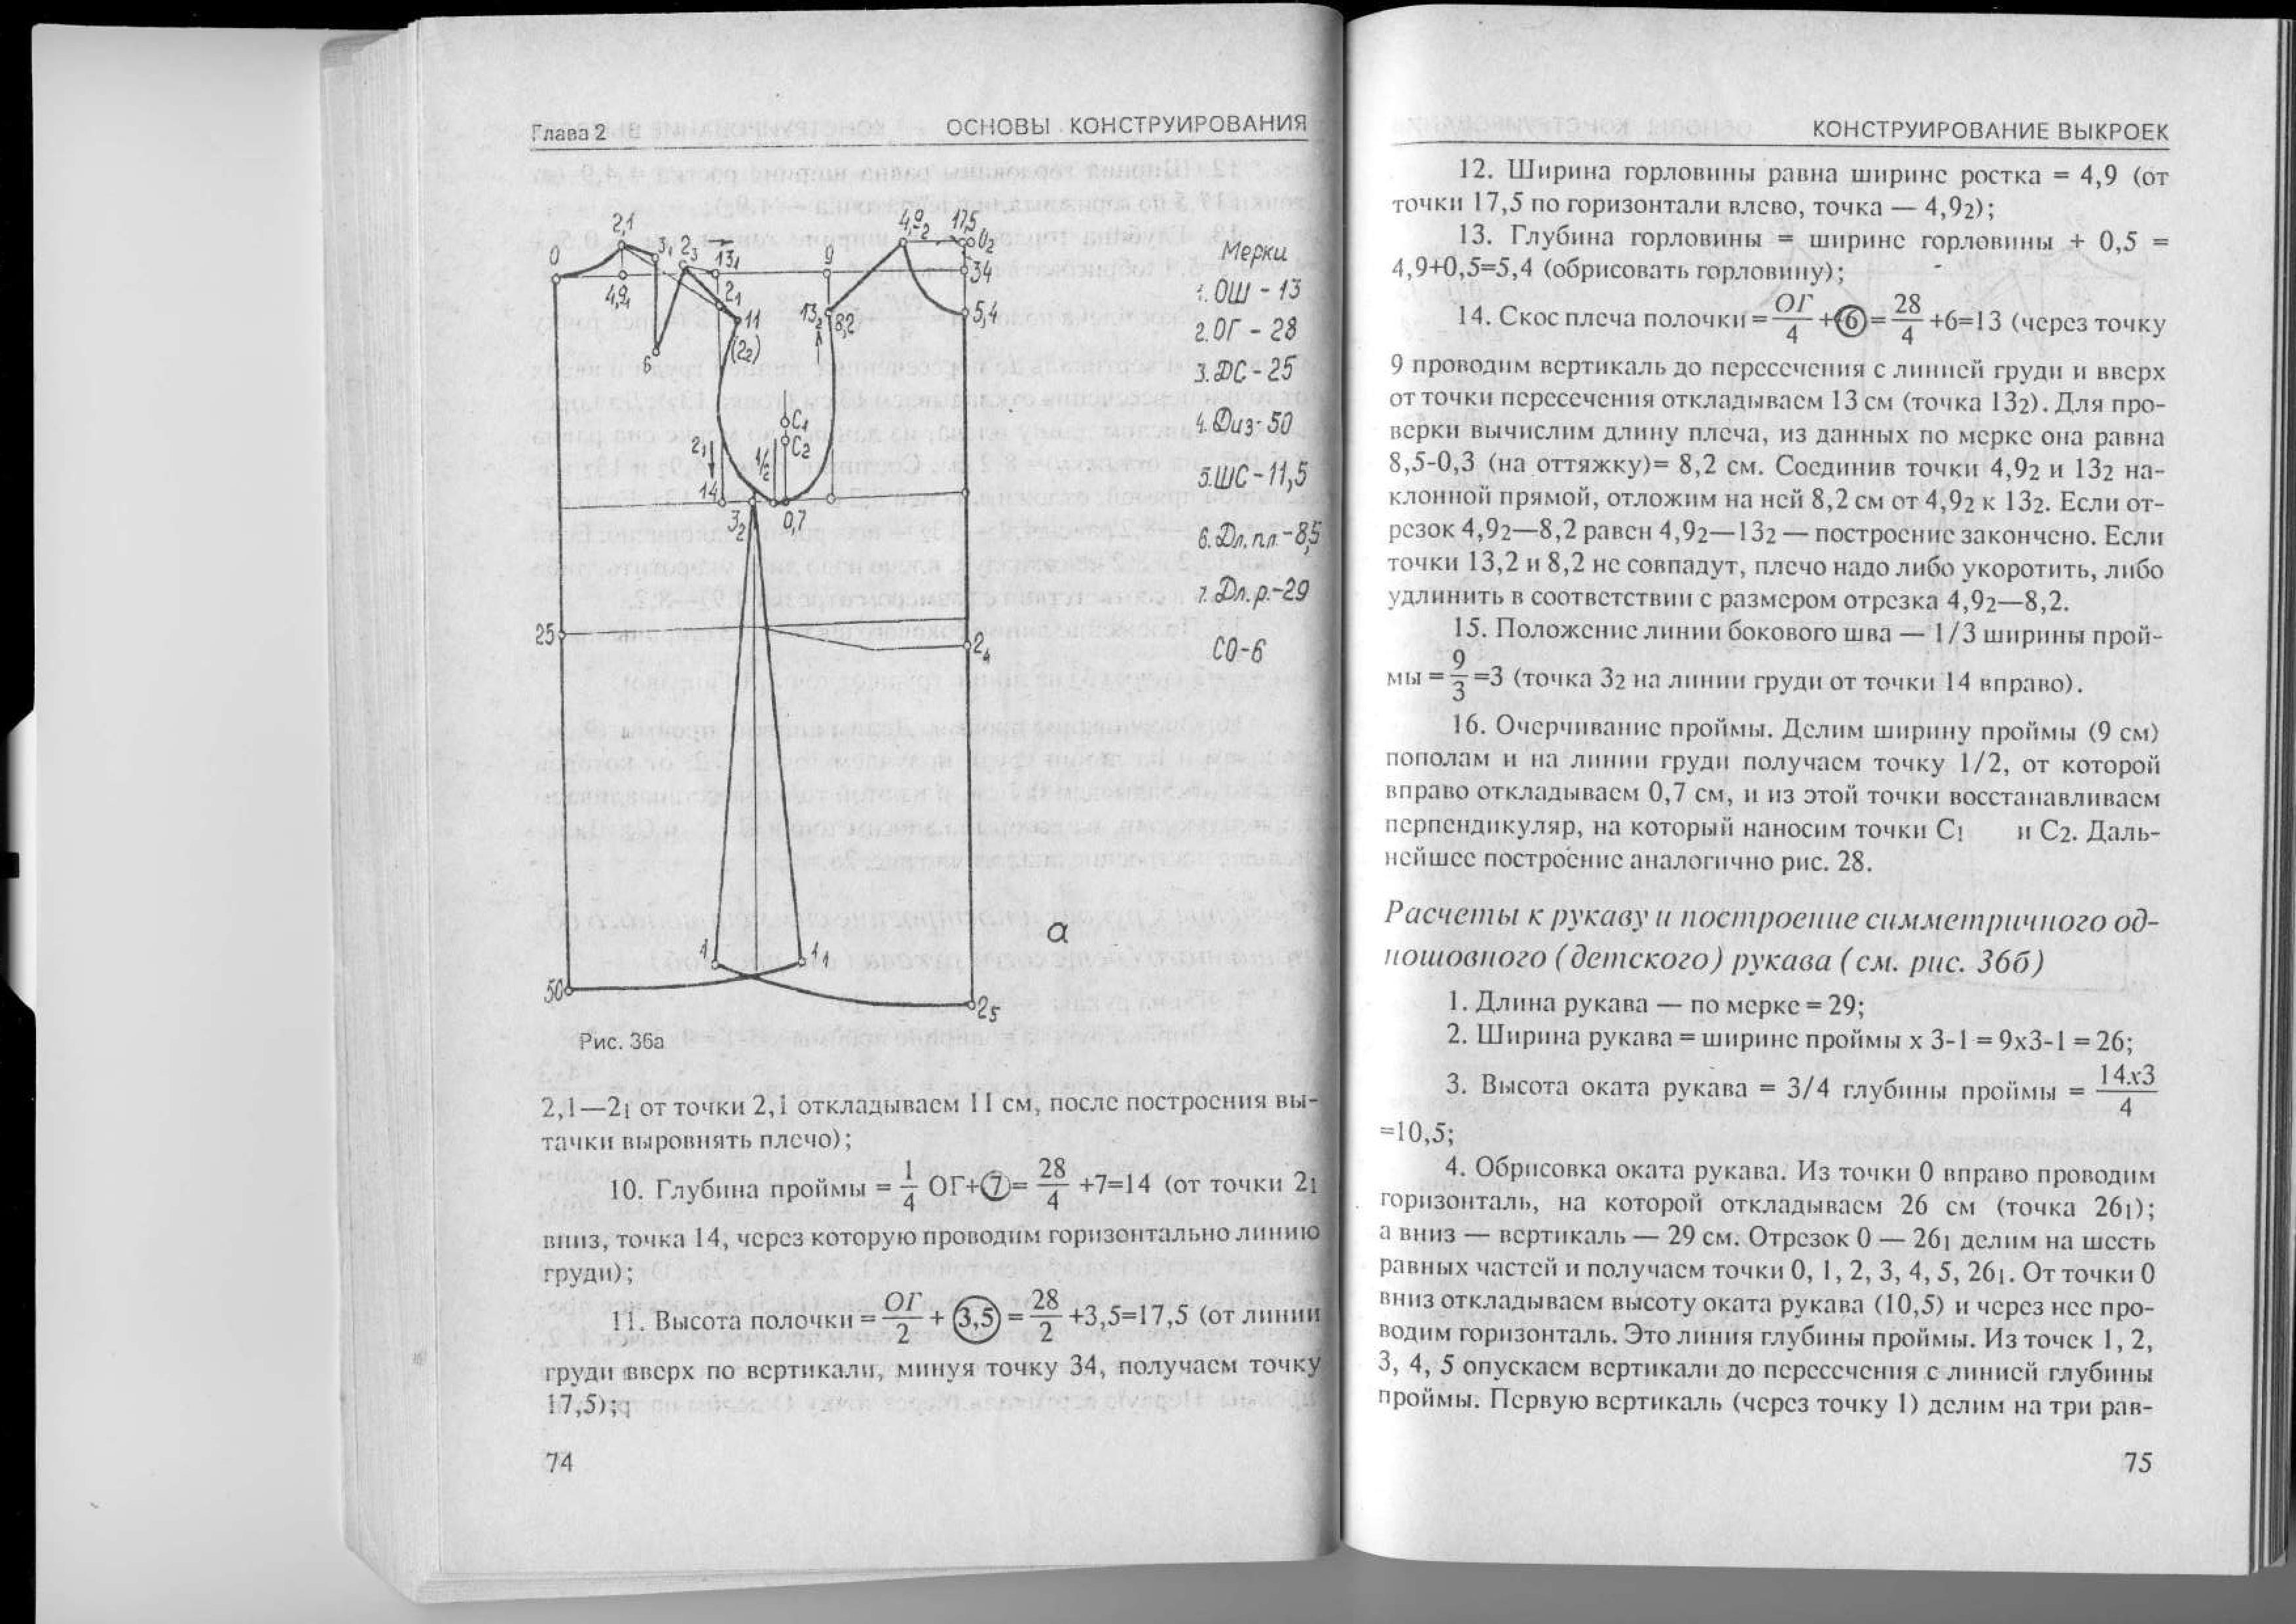 Глава 2
ОСНОВЫ КОНСТРУИРОВАНИЯ
0
2,1
3₁
2₃
13₁
9
4,9₂
17,5
0₂
34
4,9₁
2₁
11
(2₂)
6
13₂
8,2
5,4
C₁
C₂
2₁
1/2
14
3₂
0,7
25
2₄
1
1₁
50
2₅
а
Мерки
1. ОШ - 13
2. ОГ - 28
3. ДС - 25
4. Диз - 50
5. ШС - 11,5
6. Дл. пл. - 8,5
7. Дл. р. - 29
СО - 6
Рис. 36а
2,1—2₁ от точки 2,1 откладываем 11 см, после построения вы-
тачки выровнять плечо);
10. Глубина проймы = 1/4 ОГ+(7)= 28/4 +7=14 (от точки 2₁
вниз, точка 14, через которую проводим горизонтально линию
груди);
11. Высота полочки = ОГ/2 + (3,5) = 28/2 +3,5=17,5 (от линии
груди вверх по вертикали, минуя точку 34, получаем точку
17,5);
74
КОНСТРУИРОВАНИЕ ВЫКРОЕК
12. Ширина горловины равна ширине ростка = 4,9 (от
точки 17,5 по горизонтали влево, точка — 4,9₂);
13. Глубина горловины = ширине горловины + 0,5 =
4,9+0,5=5,4 (обрисовать горловину);
14. Скос плеча полочки = ОГ/4 +(6)= 28/4 +6=13 (через точку
9 проводим вертикаль до пересечения с линией груди и вверх
от точки пересечения откладываем 13 см (точка 13₂). Для про-
верки вычислим длину плеча, из данных по мерке она равна
8,5-0,3 (на оттяжку)= 8,2 см. Соединив точки 4,9₂ и 13₂ на-
клонной прямой, отложим на ней 8,2 см от 4,9₂ к 13₂. Если от-
резок 4,9₂—8,2 равен 4,9₂—13₂ — построение закончено. Если
точки 13,2 и 8,2 не совпадут, плечо надо либо укоротить, либо
удлинить в соответствии с размером отрезка 4,9₂—8,2.
15. Положение линии бокового шва — 1/3 ширины прой-
мы = 9/3 =3 (точка 3₂ на линии груди от точки 14 вправо).
16. Очерчивание проймы. Делим ширину проймы (9 см)
пополам и на линии груди получаем точку 1/2, от которой
вправо откладываем 0,7 см, и из этой точки восстанавливаем
перпендикуляр, на который наносим точки С₁ и С₂. Даль-
нейшее построение аналогично рис. 28.
Расчеты к рукаву и построение симметричного од-
ношовного (детского) рукава (см. рис. 36б)
1. Длина рукава — по мерке = 29;
2. Ширина рукава = ширине проймы х 3-1 = 9х3-1 = 26;
3. Высота оката рукава = 3/4 глубины проймы = 14х3/4
=10,5;
4. Обрисовка оката рукава. Из точки 0 вправо проводим
горизонталь, на которой откладываем 26 см (точка 26₁);
а вниз — вертикаль — 29 см. Отрезок 0 — 26₁ делим на шесть
равных частей и получаем точки 0, 1, 2, 3, 4, 5, 26₁. От точки 0
вниз откладываем высоту оката рукава (10,5) и через нее про-
водим горизонталь. Это линия глубины проймы. Из точек 1, 2,
3, 4, 5 опускаем вертикали до пересечения с линией глубины
проймы. Первую вертикаль (через точку 1) делим на три рав-
75